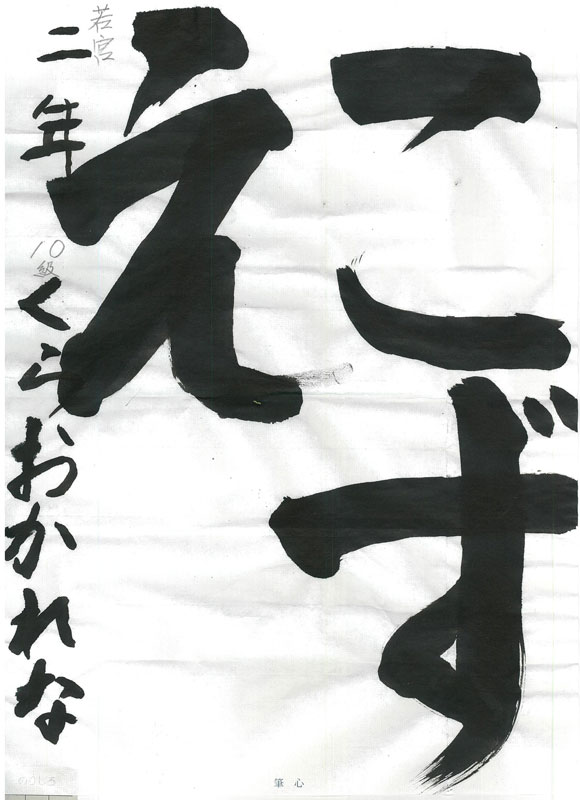 こず
え
若宮
二年 10級 くらおかれな
筆心
のりしろ